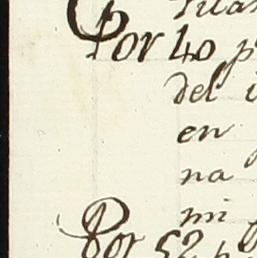 Por 40 p
del
en
na
mi
Por 52 p